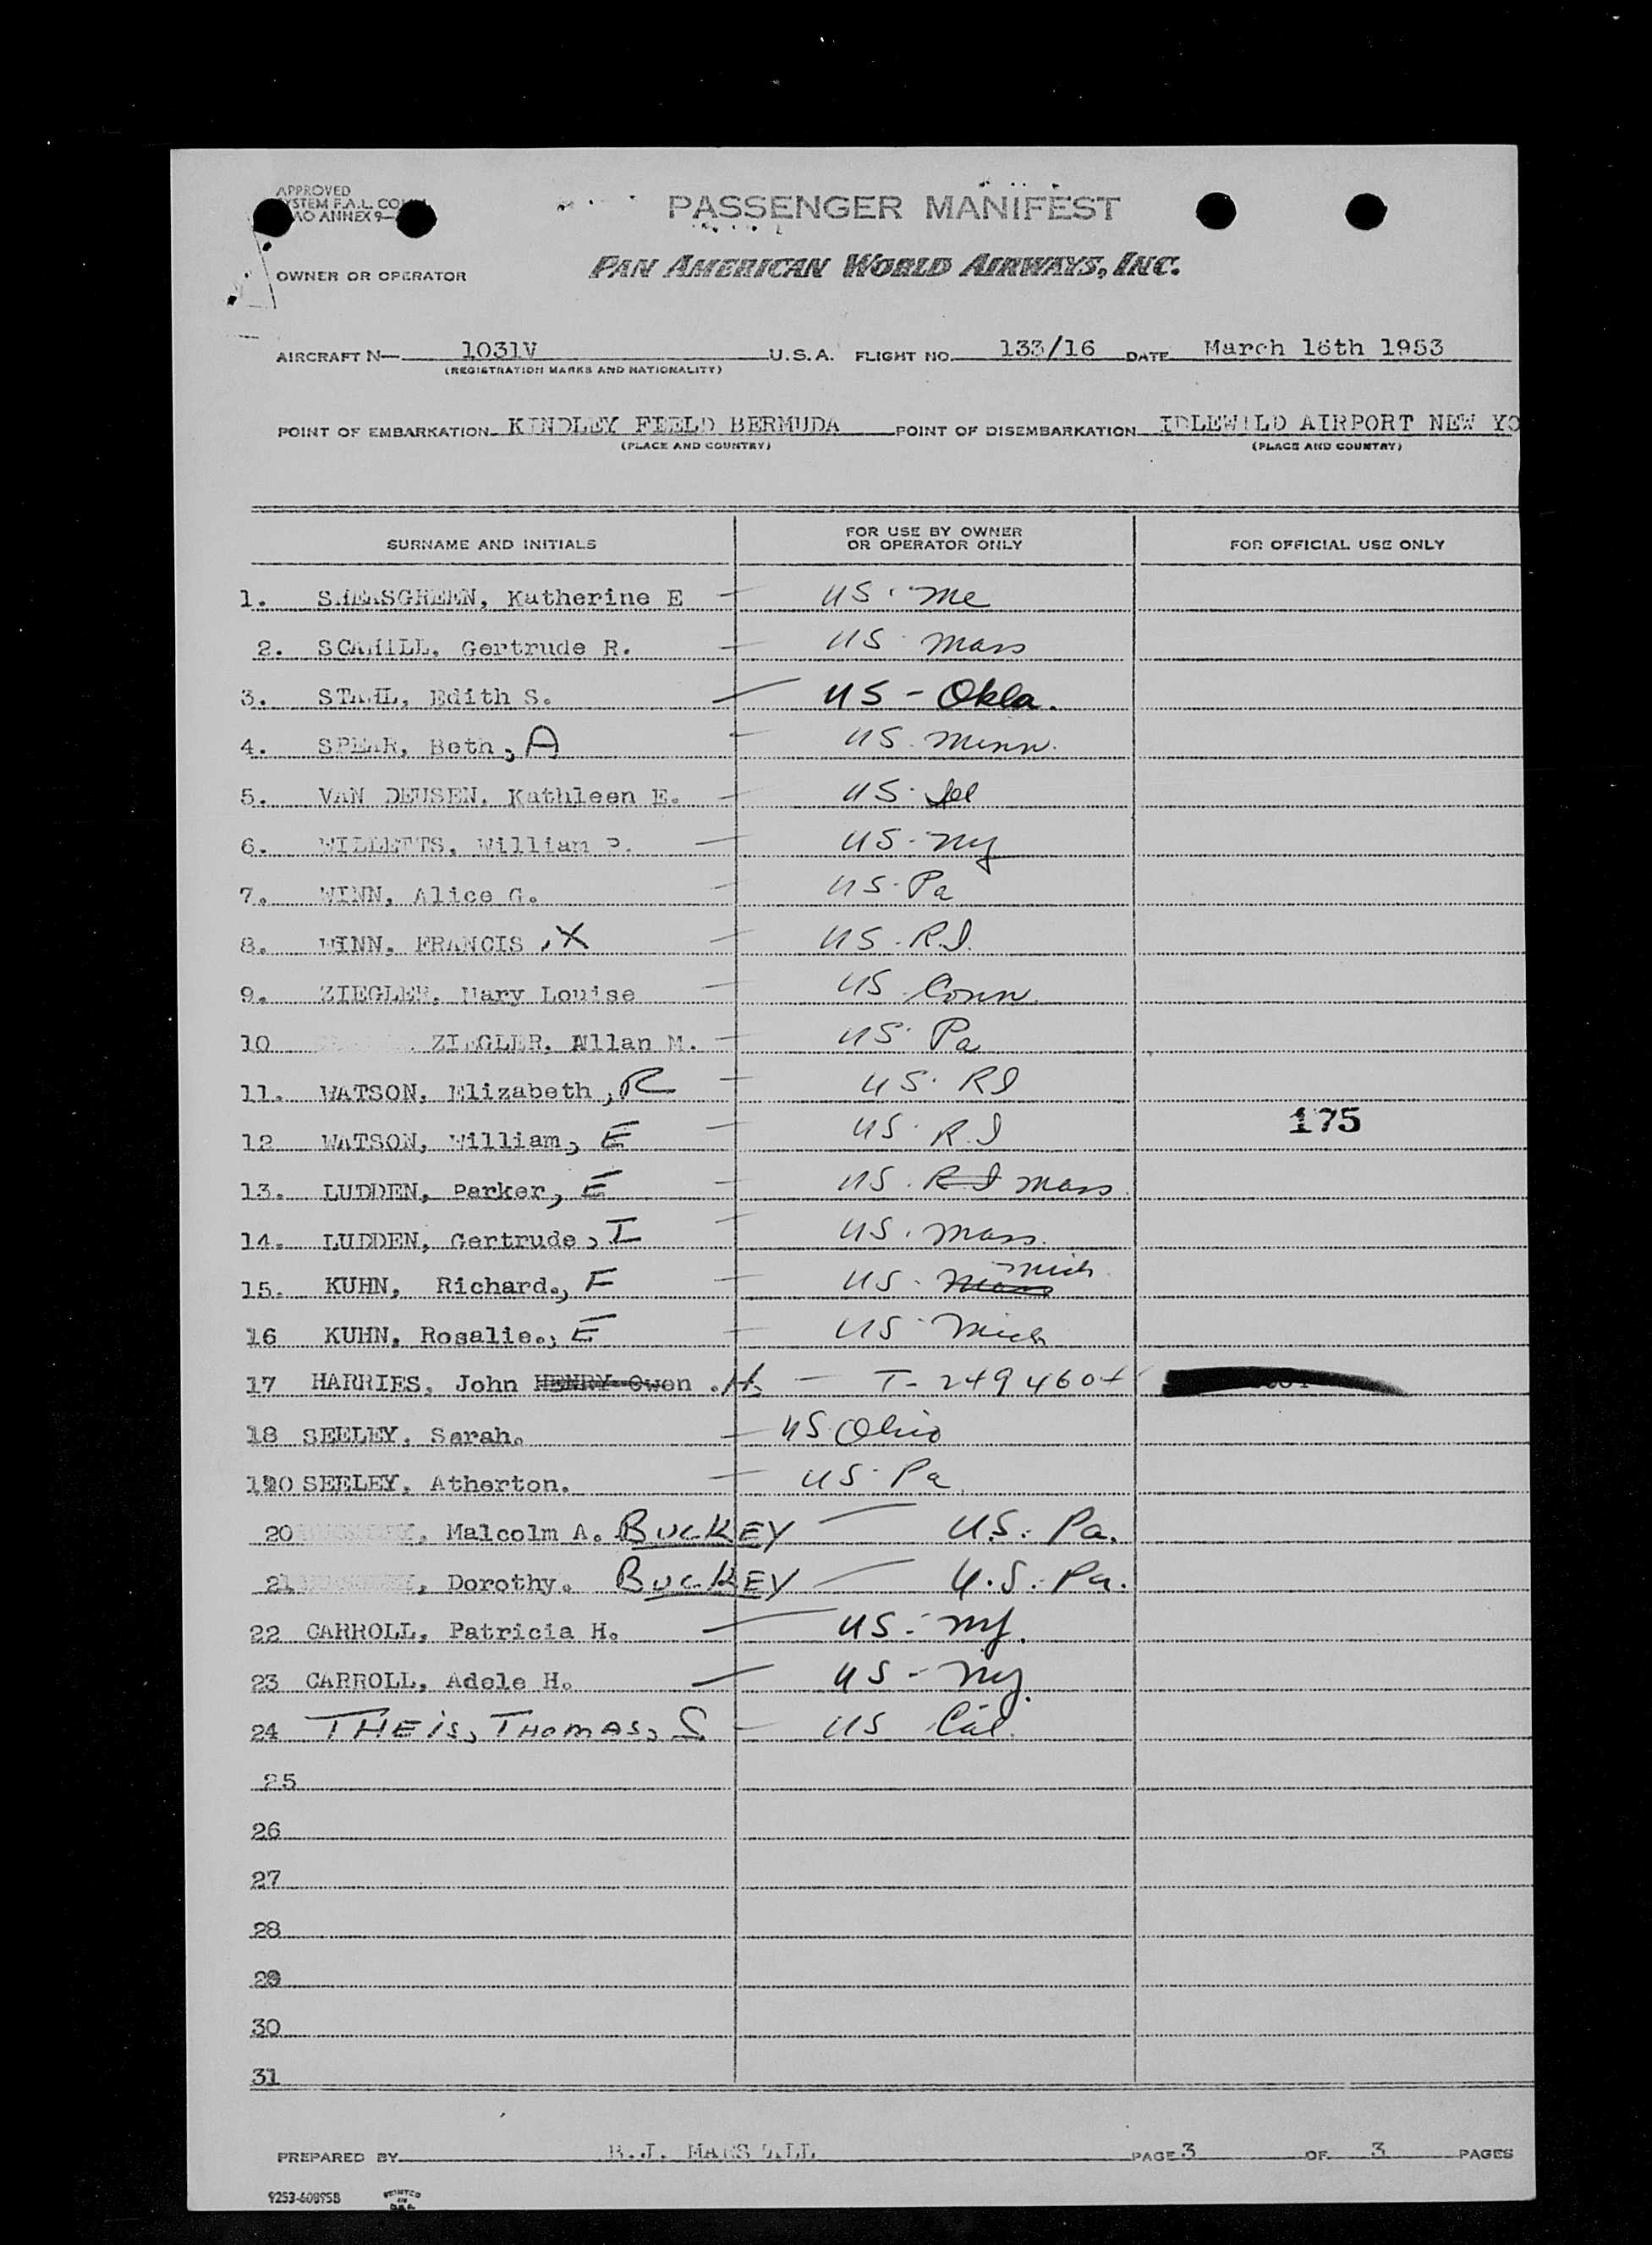 APPROVED
SYSTEM F.A.L. COMM
ANNEX 9-
PASSENGER MANIFEST
OWNER OR OPERATOR PAN AMERICAN WORLD AIRWAYS, INC.
AIRCRAFT N— 1031V U.S.A. FLIGHT NO. 133/16 DATE March 16th 1953
(REGISTRATION MARKS AND NATIONALITY)
POINT OF EMBARKATION KINDLEY FIELD BERMUDA POINT OF DISEMBARKATION IDLEWILD AIRPORT NEW YO
(PLACE AND COUNTRY) (PLACE AND COUNTRY)
SURNAME AND INITIALS FOR USE BY OWNER OR OPERATOR ONLY FOR OFFICIAL USE ONLY
1. SHEASGREEN, Katherine E — US. Me
2. SCAHILL, Gertrude R. — US Mass
3. STAHL, Edith S. — US - Okla.
4. SPEAR, Beth, A — US. Minn.
5. VAN DEUSEN, Kathleen E. — US. Ill
6. WILLETTS, William P. — US - NY
7. WINN, Alice G. — US. Pa
8. WINN, FRANCIS, X — US. R.I.
9. ZIEGLER, Mary Louise — US Conn.
10 ZIEGLER, Allan M. — US. Pa
11. WATSON, Elizabeth, R — US. RI
12 WATSON, William, E — US. R.I 175
13. LUDDEN, Parker, E — US. RI Mass.
14. LUDDEN, Gertrude, I — US. Mass.
15. KUHN, Richard., F — US. Mass Mich.
16 KUHN, Rosalie., E — US. Mich
17 HARRIES, John HENRY Owen .H. — T-249460+
18 SEELEY, Sarah. — US Ohio
190 SEELEY, Atherton. — US. Pa.
20 , Malcolm A. BUCKEY — U.S. Pa.
21 , Dorothy. BUCKEY — U.S. Pa.
22 CARROLL, Patricia H. — US - NY.
23 CARROLL, Adele H. — US - NY.
24 THEIS, THOMAS, S — US Cal.
25
26
27
28
29
30
31
PREPARED BY MARSHALL PAGE 3 OF 3 PAGES
9253-60895B PRINTED IN U.S.A.